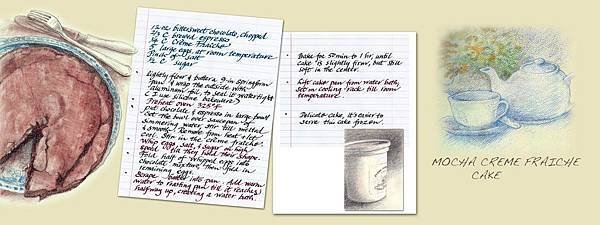 12 oz bittersweet chocolate, chopped
2/3 C brewed espresso
1/4 C Crème Fraiche
5 large eggs, at room temperature
Pinch of salt
1/2 C sugar
Lightly flour & butter a 9-in springform
pan & wrap the outside with
aluminum foil, to seal it watertight
I use silicone bakeware
Preheat oven 325°F
Put chocolate & espresso in large bowl
Set the bowl over saucepan of
simmering water, stir till melted
& smooth. Remove from heat & let
cool, stir in the crème fraiche.
Whip eggs, salt, & sugar on high
speed till they hold their shape.
Fold half of whipped eggs into
chocolate mixture, then fold in
remaining eggs.
Scrape batter into pan. Add warm
water to roasting pan till it reaches
halfway up, creating a water bath.
Bake for 50 min to 1 hr, until
cake is slightly firm, but still
soft in the center.
Lift cake pan from water bath,
set on cooling rack till room
temperature.
Delicate cake, it's easier to
serve this cake frozen.
MOCHA CREME FRAICHE
CAKE